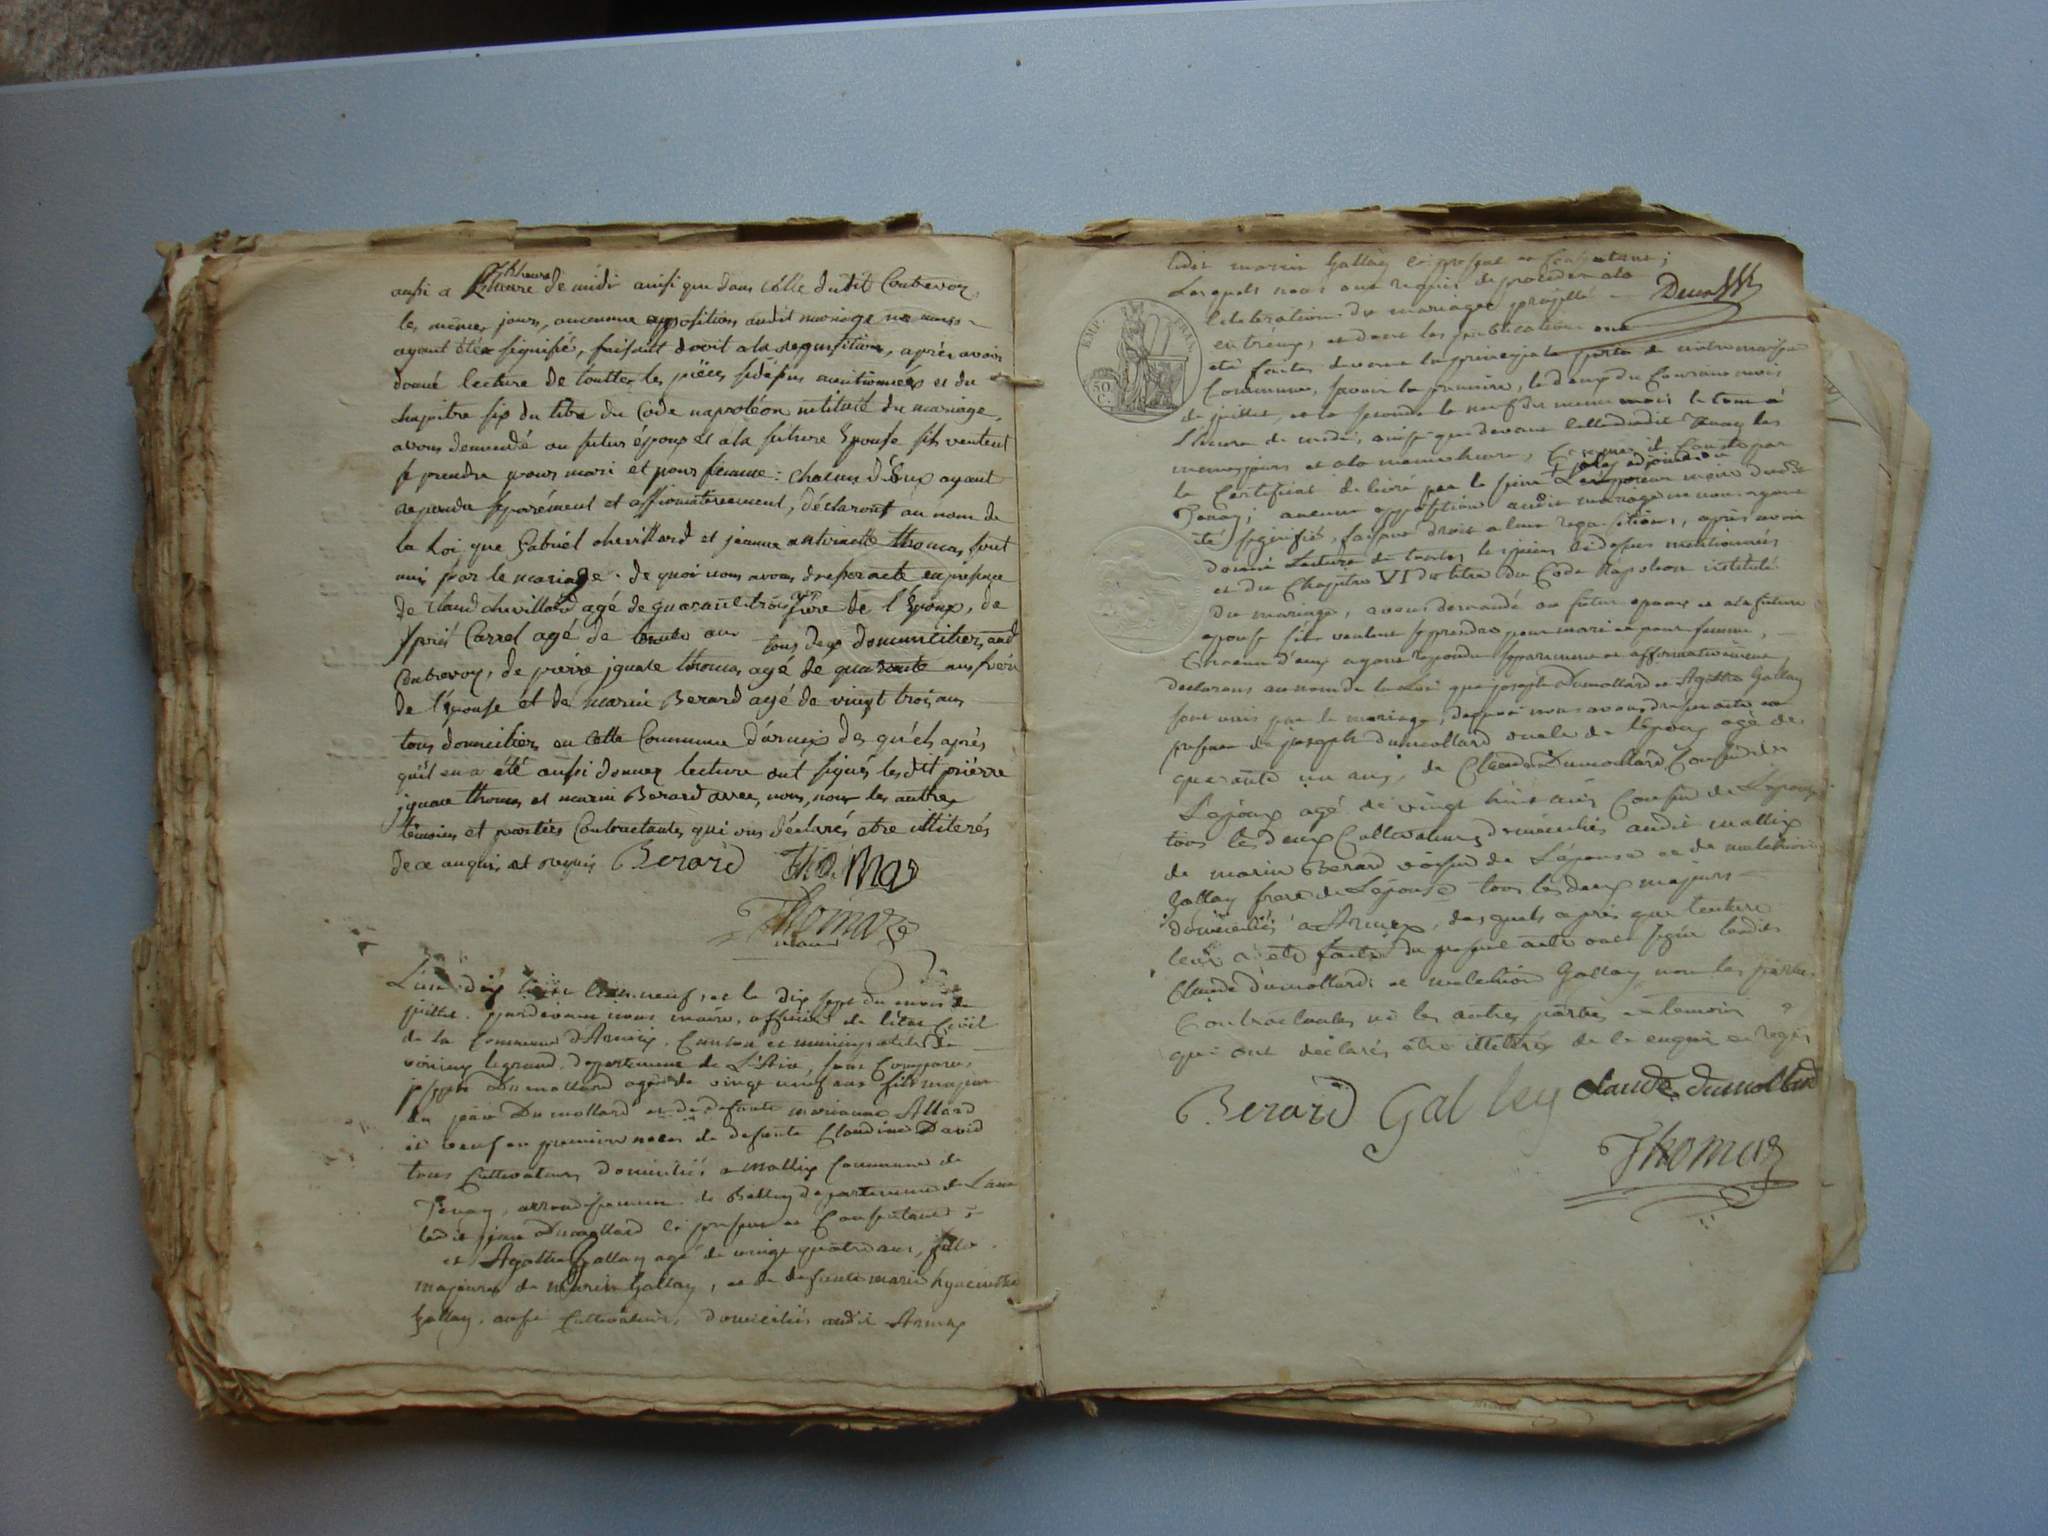 aussi a L'heure de midi ainsi que dans celle dudit Contrevoz,
les mêmes jours, aucunne opposition audit mariage ne nous
ayant étée signifié, faisant droit a la requisition, après avoir
donné lecture de touttes les pièces sidessus mentionnées et du
chapitre six du titre du Code napoléon intitulé du mariage,
avons demandé au futur époux et a la future Epouse sils veulent
se prendre pour mari et pour femme: chacun d'Eux ayant
repondu séparément et affirmativement, déclarons au nom de
la Loi que Gabriel chevillard et jeanne antoinette thomas sont
unis par le mariage. de quoi nous avons dressé acte en présence
de Claud chevillard agé de quarante trois ans frère de l'Epoux, de
Carrel agé de trente ans tous deux domiciliers aud
Contrevoz, de pierre ignace thomas agé de quarante ans frère
de l'épouse et de marin Berard agé de vingt trois ans
tous domiciliers en cette Commune d'arnix des quels après
qu'il en a été aussi donnez lecture ont signés les dit piérre
ignace thomas et marin Berard avec nous, non les autres
témoins et parties Contractantes qui ons déclarés etre illiterés
de ce anquis et requis Berard Thomas
Thomas
maire
L'an dix huit cent neuf, et le dix sept du mois de
juillet, pardevant nous maire, officier de l'état Civil
de la Commune d'Arnix, Canton et municipalité de
virieu legrand, département de L'Ain, sont Comparus
joseph Dumollard agé de vingt neuf ans fils majeur
de jean Dumollard et de defunte marianne Allard
et veuf en premiere noces de defunte Claudine David
tous Cultivateurs domiciliés a mallix Commune de
Tenay, arrondissement de Belley département de Lain
ledit jean Dumollard ci present et Consentant;
et Agathe Gallay agé de vingt quatre ans, fille
majeure de marin Gallay, et de defunte marie hyacinthe
Gallay, aussi Cultivateurs, domiciliés audit Arnix
ledit marin Gallay ci present et Consentant;
Lesquels nous ont requis de proceder a la
celebration du mariage projetté
entreux, et dont les publications ont
eté faites devant la principale porte de notre maison
Commune, savoir la premiere, le deux du Courant mois
de juillet, et la seconde le neuf du meme mois le tout à
L'heure de midi, ainsi que devant celle dudit Tenay les
memes jours et a la meme heure, Comme il Conste par
le Certificat delivré par le sieur Lempereur maire dudit
Tenay; aucune opposition audit mariage ne nous ayant
été signifié, faisant droit a leur requisitions, après avoir
donné Lecture de toutes les pieces cidessus mentionnées
et du Chapitre VI du titre du Code Napoleon intitulé
du mariage, avons demandé au futur epoux et a la future
epouse sils veulent se prendre pour mari et pour femme,
Chacun d'eux ayant repondu separement et affirmativement
declarons au nom de la Loi que joseph Dumollard et Agathe Gallay
sont unis par le mariage, dequoi nous avons dressé acte en
presence de joseph dumollard oncle de l'époux agé de
quarante un ans, de Claude Dumollard Cousin de
L'époux agé de vingt huit ans Cousin de L'epoux
tous les deux Cultivateurs domiciliés audit mallix
de marin Berard voisin de L'épouse et de melchior
Gallay frere de L'épouse tous les deux majeurs
domiciliés à Arnix, des quels après que lecture
leur a eté faite du present acte ont signé lesdits
Claude dumollard et melchior Gallay non les parties
Contractantes ni les autres parties et temoins
qui ont declarés etre illiteré de ce enquis et requis
Berard Galley claude dumollard
Thomas
EMP. FRAN.
50
C.